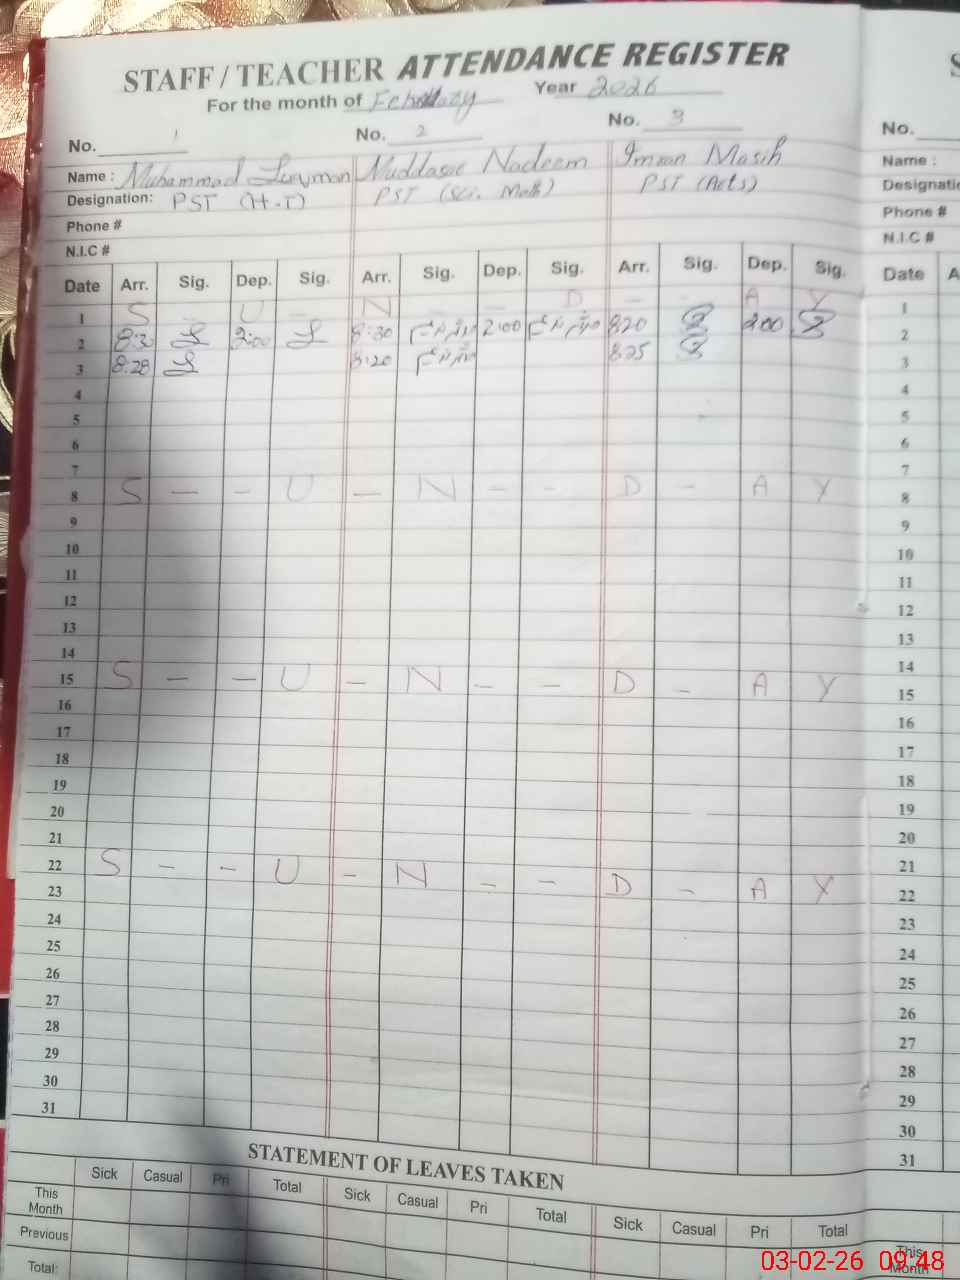 STAFF / TEACHER ATTENDANCE REGISTER
For the month of February Year 2026
No. 1 No. 2 No. 3 No.
Name : Muhammad Nadeem Imran Masih Name :
Designation: PST (H-T) PST (Sci. Math) PST (Arts)
Phone # Phone #
N.I.C # N.I.C #
Date Arr. Sig. Dep. Sig. Arr. Sig. Dep. Sig. Arr. Sig. Dep. Sig. Date
1 S - U - N - - D - - A Y 1
2 8:30 2:00 8:30 2:00 8:20 2:00 2
3 8:28 8:20 8:25 3
4 4
5 5
6 6
7 7
8 S - - U - N - - D - A Y 8
9 9
10 10
11 11
12 12
13 13
14 14
15 S - - U - N - - D - A Y 15
16 16
17 17
18 18
19 19
20 20
21 21
22 S - - U - N - - D - A Y 22
23 23
24 24
25 25
26 26
27 27
28 28
29 29
30 30
31 31
STATEMENT OF LEAVES TAKEN
Sick Casual Pri Total Sick Casual Pri Total Sick Casual Pri Total
This Month This Month
Previous
Total:
03-02-26 09:48